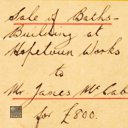 Sale of Baths-
Building at
Hopetown Works
to
Mr James McCab
for £800.